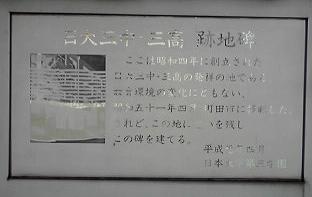 日大三中・三高 跡地碑
ここは昭和四年に創立された
日大三中・三高の発祥の地である
環境の変化にともない、
五十一年四月町田市に移転した。
されど、この地に いを残し
この碑を建てる。
平成 年四月
日本大学第三学園